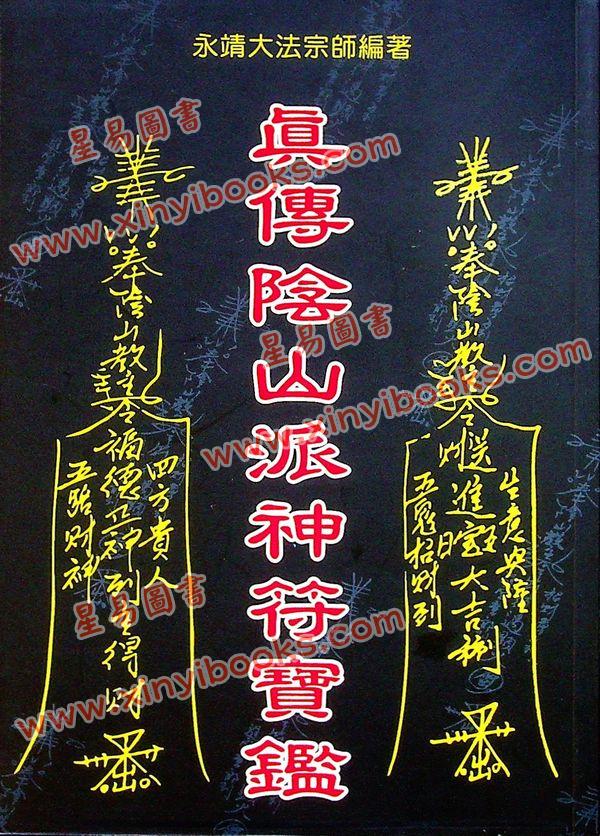 永靖大法宗師編著
真傳陰山派神符寶鑑
奉陰山教主令
進寶大吉利
生意興隆
五鬼招財到
奉陰山教主令
福德正神到
得財
四方貴人
五路財神
星易圖書
www.xinyibooks.com
星易圖書
www.xinyibooks.com
星易圖書
www.xinyibooks.com